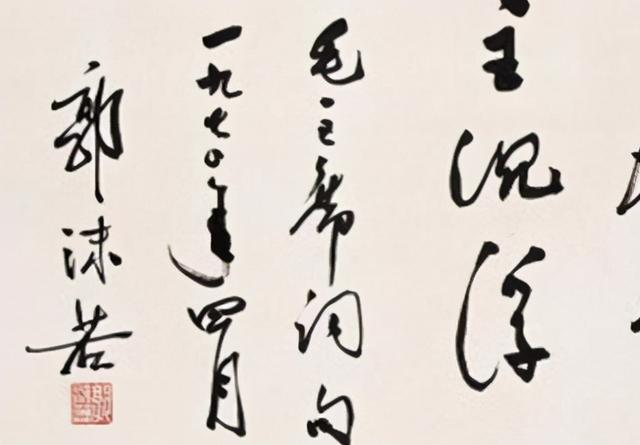 主沉浮
毛主席词句
一九七〇年四月
郭沫若